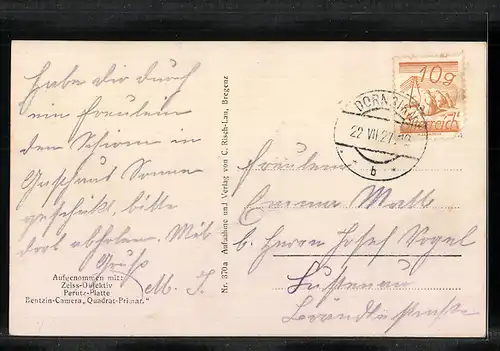 Habe dir durch
ein Fräulein
den Schirm in
Gasthaus Sonne
geschickt, bitte
dort abholen. Mit
Gruß
M. I.
Aufgenommen mit:
Zeiss-Objektiv
Perutz-Platte
Bentzin-Camera „Quadrat-Primar."
Nr. 370a Aufnahme und Verlag von C. Risch-Lau, Bregenz
10g
Österreich
DORNBIRN
22 VII 27
* b *
Fräulein
Emma
b. Herrn Josef Vogel
Lustenau